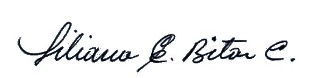 Liliana E. Bitar C.